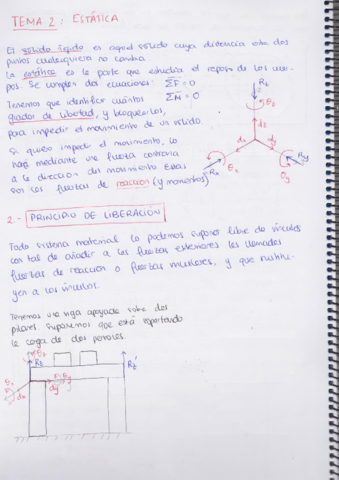 TEMA 2: ESTÁTICA
El sólido rígido es aquel sólido cuya distancia entre dos
puntos cualesquiera no cambia.
La estática es la parte que estudia el reposo de los cuer-
pos. Se cumplen dos ecuaciones: ΣF = 0
ΣM = 0
Tenemos que identificar cuántos
grados de libertad, y bloquearlos,
para impedir el movimiento de un sólido.
Si quiero impedir el movimiento, lo
haré mediante una fuerza contraria
a la dirección del movimiento. Estas
son las fuerzas de reacción (y momentos)
Rz
θz
dz
dx
dy
Rx
θx
Ry
θy
2.- PRINCIPIO DE LIBERACIÓN
Todo sistema material lo podemos suponer libre de vínculos
con tal de añadir a las fuerzas exteriores las llamadas
fuerzas de reacción o fuerzas vinculares, y que sustitu-
yen a los vínculos.
Tenemos una viga apoyada sobre dos
pilares. Suponemos que está soportando
la carga de dos personas.
θz
Rz
Rz'
θx
dx
θy
dy